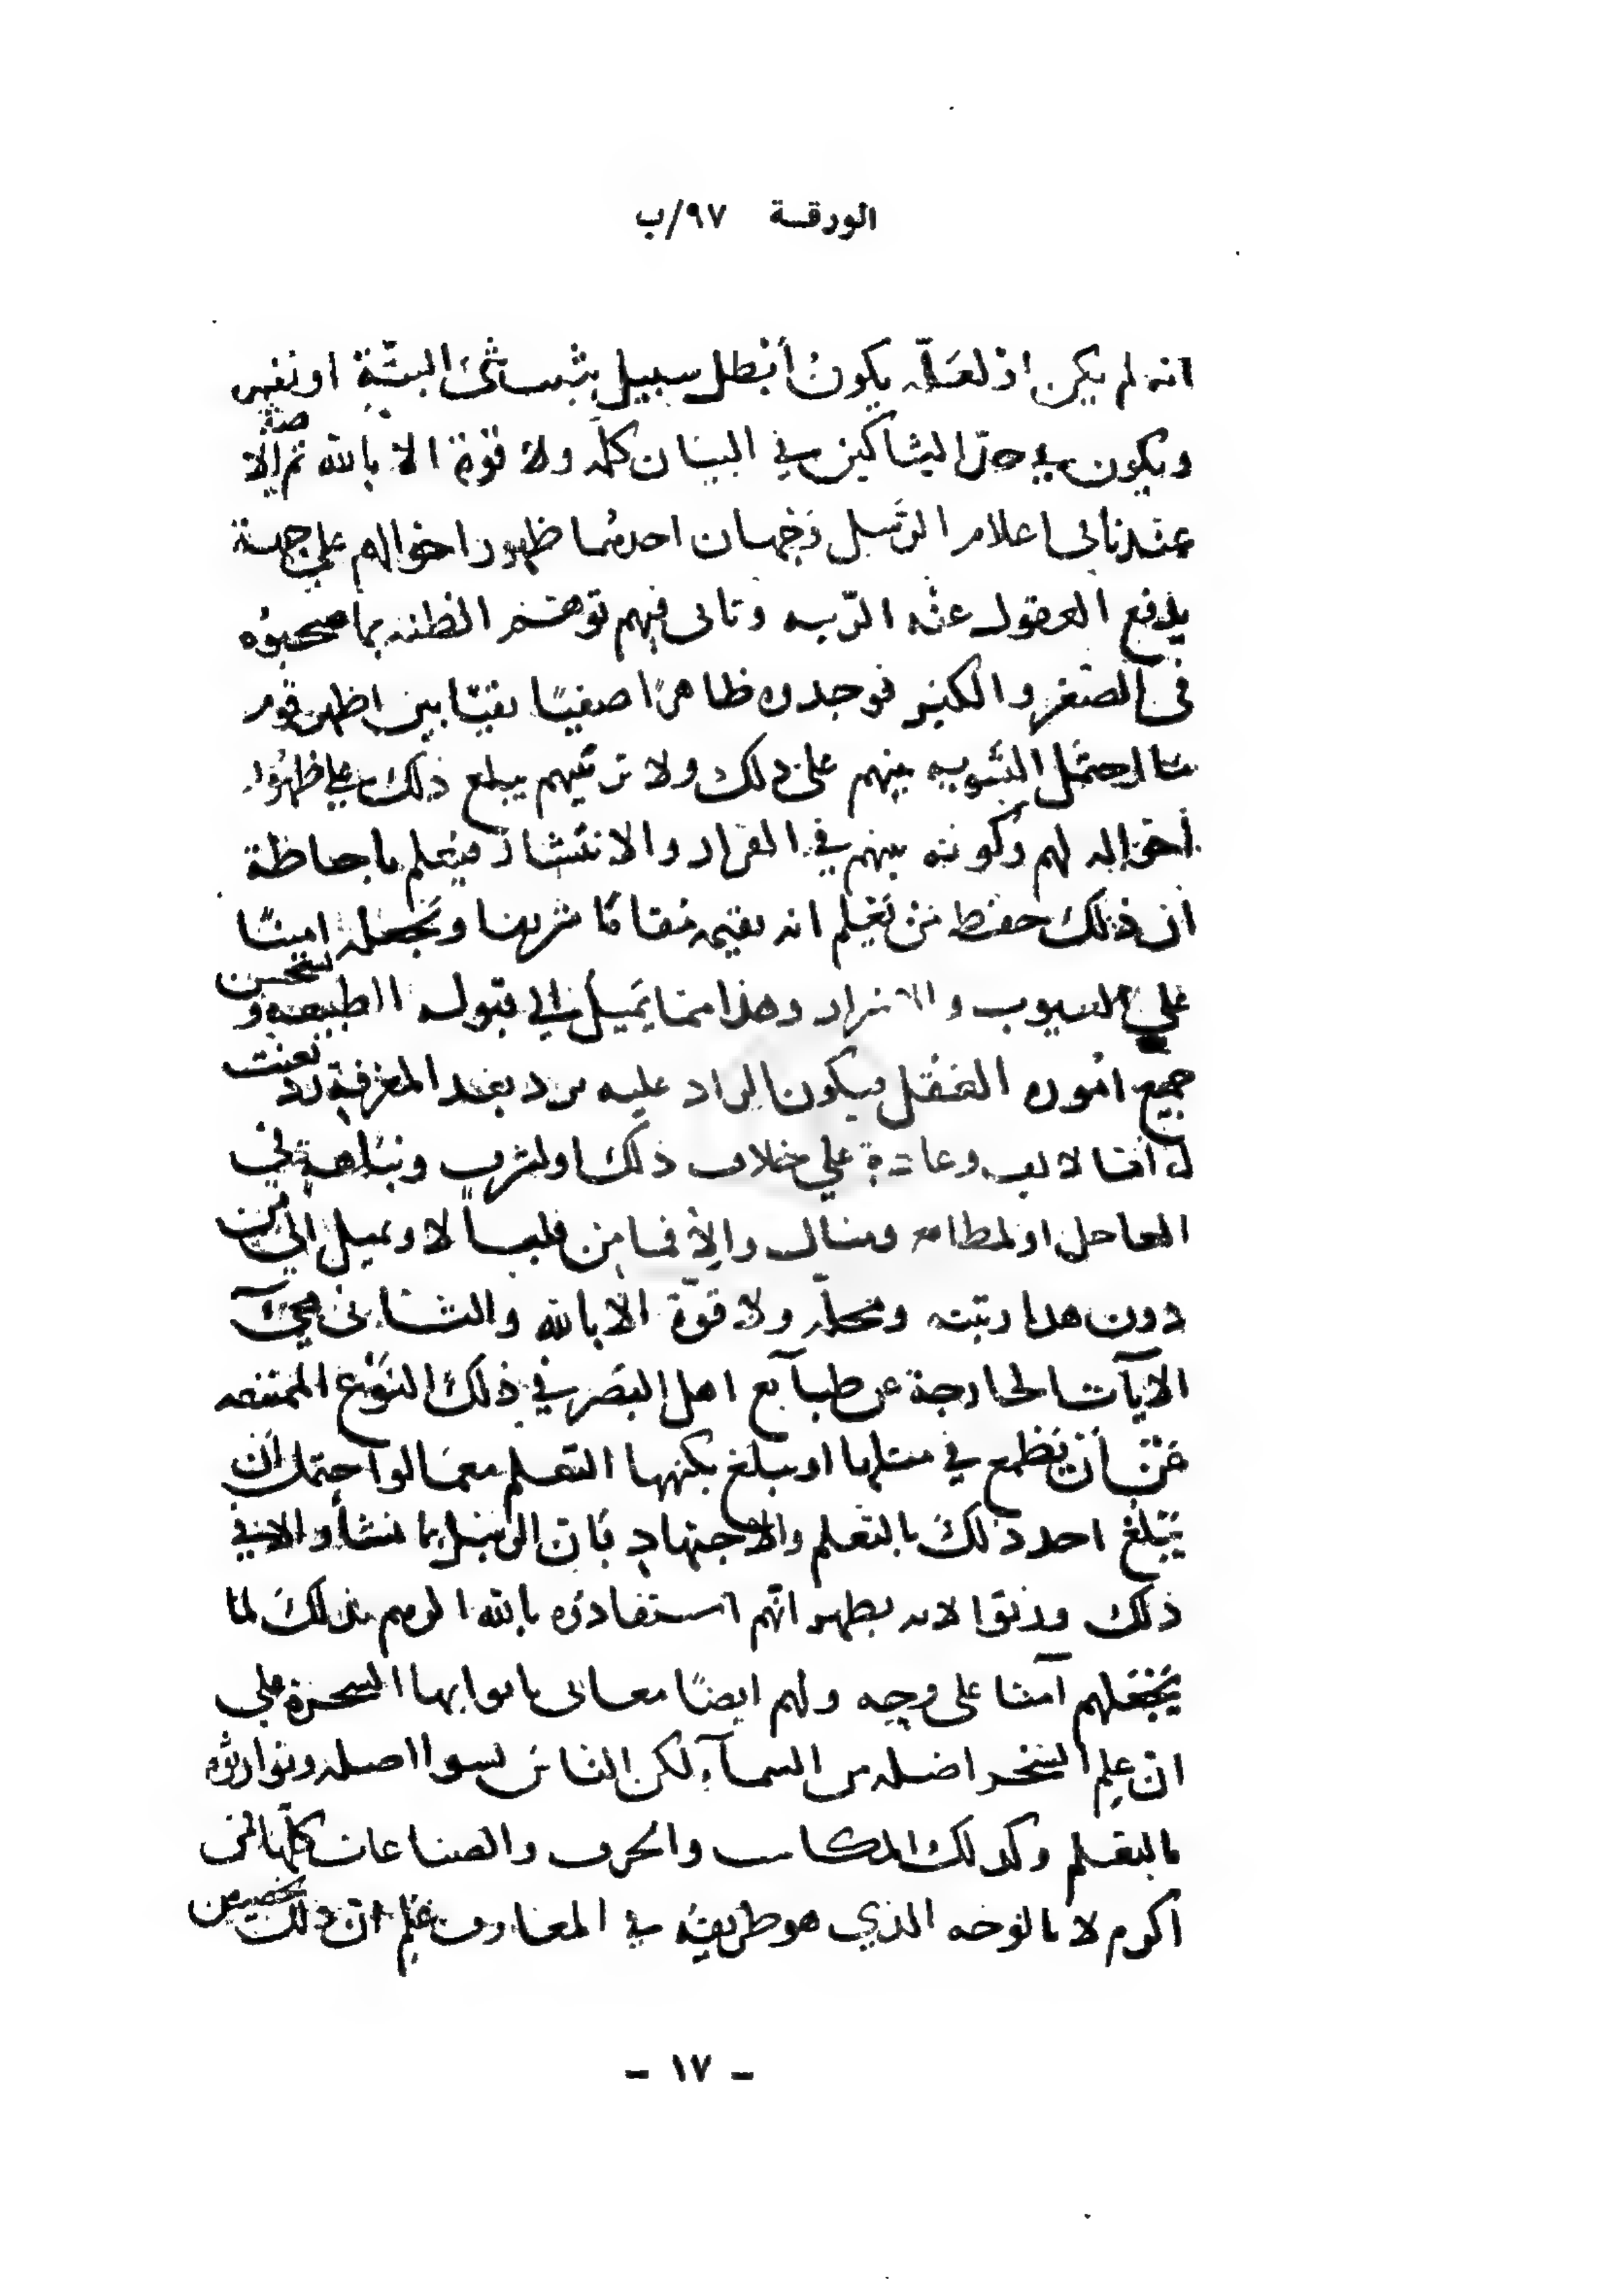 الورقة ٩٧/ب
انه لم يكن اذ لعَلّه يكونُ أبْطل سبيل يثبت شئ البتّة او نفيه
ويكون في حدّ الشاكّين في البيان كلّه ولا قوّة الا بالله ثم الاصل
عندنا في اعلام الرّسل وَجْهان احدهُما ظهور احوالهم على جهة
يدفع العقول عنْه الرّيبه وتابى فيهم توهّم الظنه بما صحبوُه
في الصّغر والكبر فوجدوه ظاهرًا صفيًا نقيّا بين اظهر قوم
ما احتمل التَسْويه بينهم على ذلك ولا تربّيهم يبلغ ذلك على ظهوُر
أحْواله لهم وكونه بينهم في القرار والانتشار فيعلم باحاطة
ان ذلك حفظ مَن يَعْلم انه يقيمه مُقامًا شريفا ويَجعله امينًا
على الغيوب والاسرار وهذا ممّا يَميل الى قبوله الطبيعة ويستحسن
جميع اموُره العَقل فيكون الراد عليه يرد بعد المعرفة ردّ تعنّت
له امّا لالف وعادة على خلاف ذلك او لشرف ونباهة في
العاجل او لمطامع ومنال والا فما من قلب الا ويميل الى من
دون هذا رتبته ومحلّه ولا قوّة الّا بالله والثاني مجيء
الآيات الخارجة عن طبآيع اهل البَصَر في ذلك النّوْع الممتنعه
عَنْ أن يَطْمع في مثلها او يبلغ بكنهها التعلم مع ما لو احتمل أن
يَبْلغ احد ذلك بالتعلم والاجتهاد فانّ الرّسل بما نشأوا لا في
ذلك وربّوا لا به يظهر انّهم استفادوُه بالله اكرمهم بذلك لما
يَجْعلهم اَمنَا على وحيه ولهم ايضًا معانى بانوا بها السحرة على
ان علم السّحر اصْله من السمآء لكن الناس نسوا اصله وتوارثوه
بالتعلم وكذلك المكاسب والحرف والصناعات كلّها فمن
اكرم لا بالوَجه الذي هو طريقه في المعارف علم انّ ذلك تخصيص
- ١٧ -